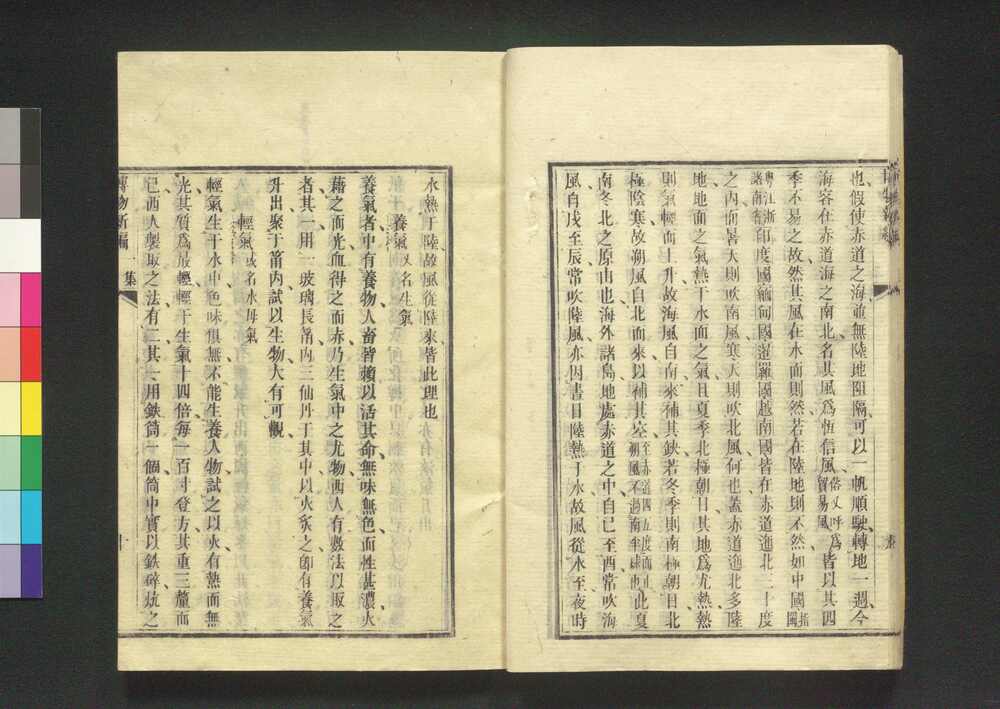 也假使赤道之海並無陸地阻隔可以一帆順駛轉地一週今
海容在赤道海之南北名其風爲恆信風俗又呼爲貿易風皆以其四
季不易之故然其風在水面則然若在陸地則不然如中國指閩
粵江浙諸南省印度國緬甸國暹羅國越南國皆在赤道迤北三十度
之內而暑天則吹南風寒天則吹北風何也蓋赤道迤北多陸
地地面之氣熱于水面之氣且夏季北極朝日其地爲尤熱熱
則氣輕而上升故海風自南來補其欽若冬季則南極朝日北
極陰寒故朔風自北而來以補其空至赤道四五度而止朔風不過南半球此夏
南冬北之原由也海外諸島地處赤道之中自巳至酉常吹海
風自戌至辰常吹陸風亦因晝日陸熱于水故風從水至夜時
水熱于陸故風從陸來皆此理也
養氣又名生氣
養氣者中有養物人畜皆賴以活其命無味無色而性甚濃火
藉之而光血得之而赤乃生氣中之尤物西人有數法以取之
者其一用一玻璃長筩內三仙丹于其中以火炙之卽有養氣
升出聚于筩內試以生物大有可觀
輕氣或名水母氣
輕氣生于水中色味俱無不能生養人物試之以火有熱而無
光其質爲最輕輕于生氣十四倍每一百寸登方其重三釐而
已西人製取之法有二其一用鉄筒一個筒中實以鉄碎炕之
博物新編 一集 十